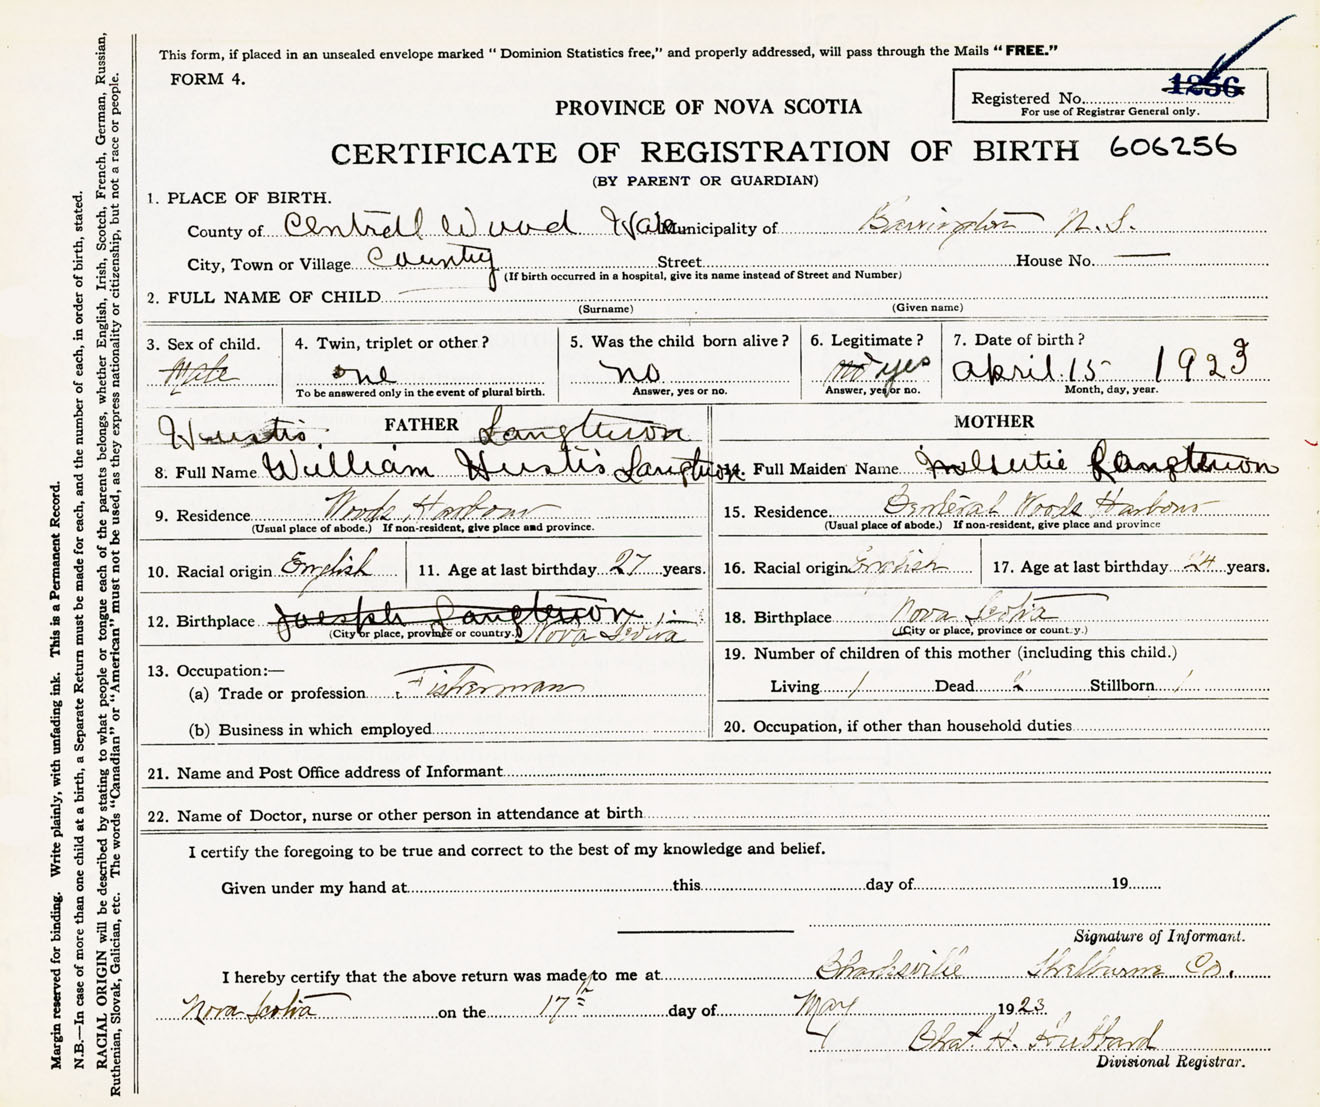 This form, if placed in an unsealed envelope marked "Dominion Statistics free," and properly addressed, will pass through the Mails "FREE."
FORM 4.
Registered No. 1256
For use of Registrar General only.
PROVINCE OF NOVA SCOTIA
CERTIFICATE OF REGISTRATION OF BIRTH 606256
(BY PARENT OR GUARDIAN)
1. PLACE OF BIRTH.
County of Centrall Wood Municipality of Barrington N.S.
City, Town or Village County Street House No. —
(If birth occurred in a hospital, give its name instead of Street and Number)
2. FULL NAME OF CHILD
(Surname) (Given name)
3. Sex of child. 4. Twin, triplet or other? 5. Was the child born alive? 6. Legitimate? 7. Date of birth?
Male one no no yes april 15 1923
To be answered only in the event of plural birth. Answer, yes or no. Answer, yes or no. Month, day, year.
Hustis FATHER Langtwon MOTHER
8. Full Name William Hustis 14. Full Maiden Name
9. Residence Woods Harbour 15. Residence Woods Harbour
(Usual place of abode.) If non-resident, give place and province. (Usual place of abode.) If non-resident, give place and province
10. Racial origin English 11. Age at last birthday 27 years. 16. Racial origin English 17. Age at last birthday 24 years.
12. Birthplace Joesph 18. Birthplace Nova Scotia
(City or place, province or country.) Nova Scotia (City or place, province or country.)
19. Number of children of this mother (including this child.)
13. Occupation:—
(a) Trade or profession Fisherman Living 1 Dead 2 Stillborn 1
(b) Business in which employed 20. Occupation, if other than household duties
21. Name and Post Office address of Informant
22. Name of Doctor, nurse or other person in attendance at birth
I certify the foregoing to be true and correct to the best of my knowledge and belief.
Given under my hand at this day of 19
Signature of Informant.
I hereby certify that the above return was made to me at Charlesville Shelburne Co.
Nova Scotia on the 17th day of May 1923
Chas. H. Hubbard
Divisional Registrar.
Margin reserved for binding. Write plainly, with unfading ink. This is a Permanent Record.
N.B.—In case of more than one child at a birth, a Separate Return must be made for each, and the number of each, in order of birth, stated.
RACIAL ORIGIN will be described by stating to what people or tongue each of the parents belongs, whether English, Irish, Scotch, French, German, Russian,
Ruthenian, Slovak, Galician, etc. The words "Canadian" or "American" must not be used, as they express nationality or citizenship, but not a race or people.